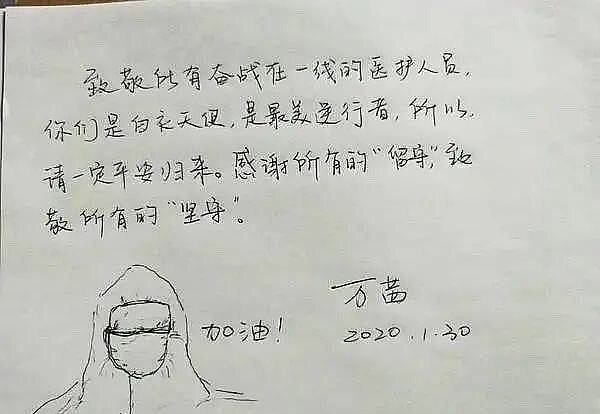 致敬所有奋战在一线的医护人员，
你们是白衣天使，是最美逆行者，所以，
请一定平安归来。感谢所有的“留守”，致
敬所有的“坚守”。
加油！
万茜
2020.1.30